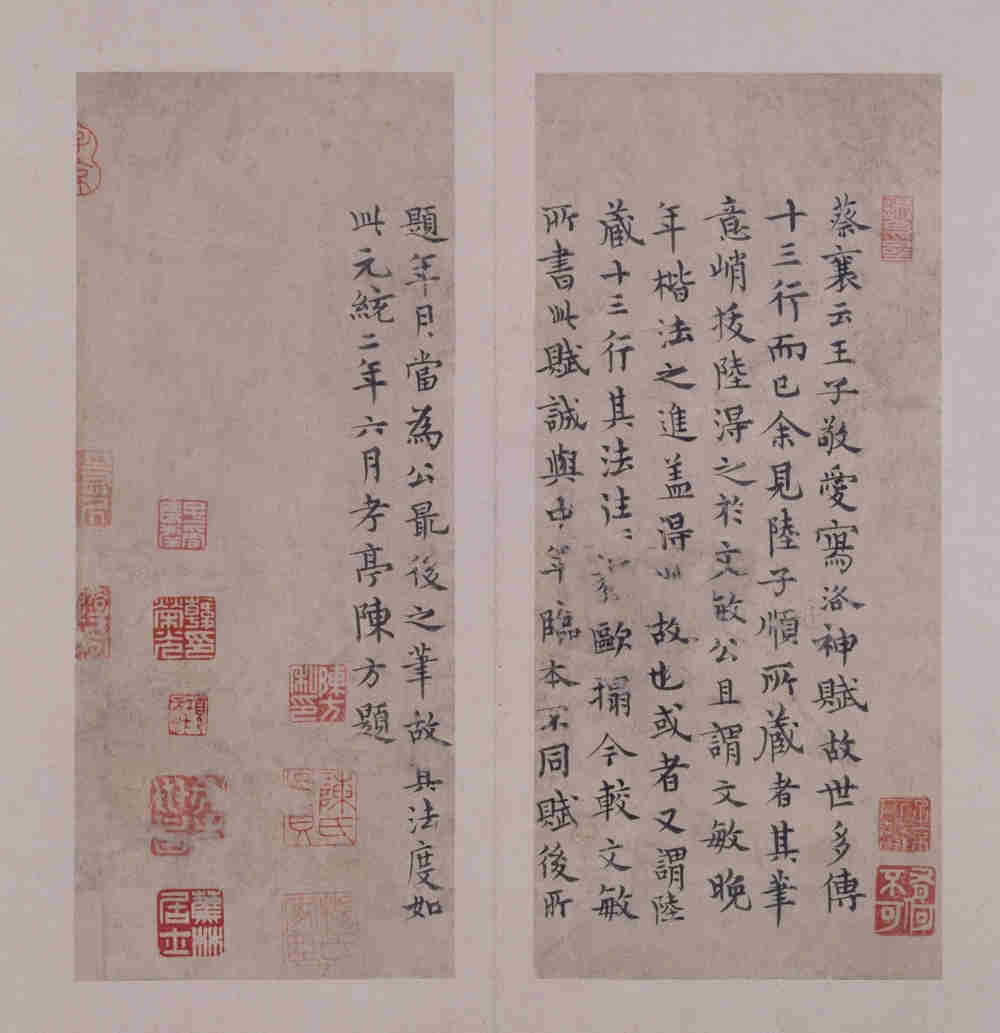 蔡襄云王子敬愛寫洛神賦故世多傳
十三行而已余見陸子順所藏者其筆
意峭拔陸得之於文敏公且謂文敏晚
年楷法之進盖得此故也或者又謂陸
藏十三行其法往〻 歐搨今較文敏
所書此賦誠與中年臨本不同賦後所
題年月當為公最後之筆故其法度如
此元統二年六月孝亭陳方題
陳方
陳氏
蕉林居士
無何不可